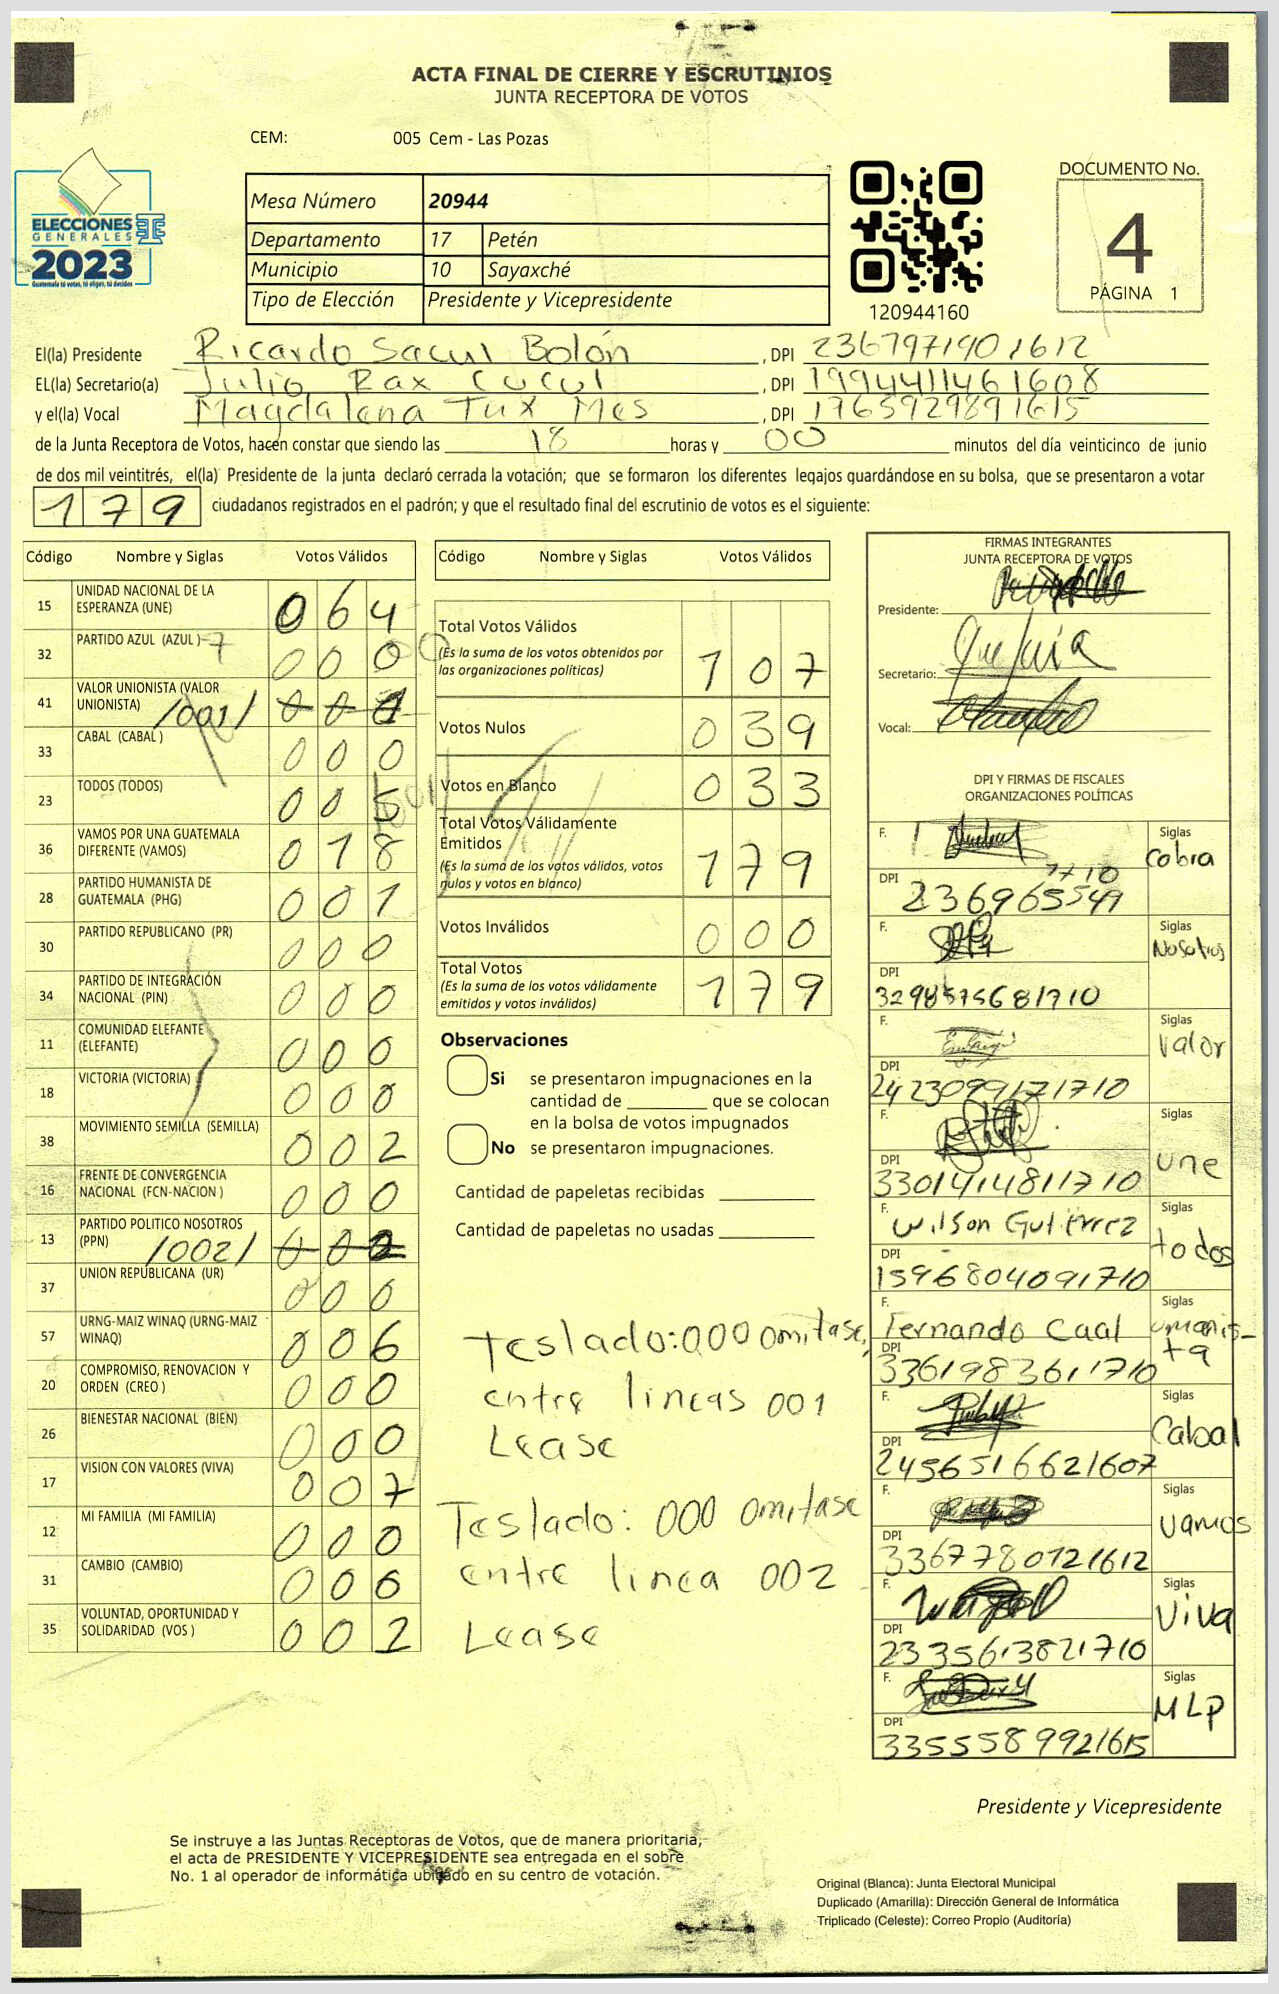 ACTA FINAL DE CIERRE Y ESCRUTINIOS
JUNTA RECEPTORA DE VOTOS
CEM: 005 Cem - Las Pozas
ELECCIONES
GENERALES
2023
Guatemala tú votas, tú eliges, tú decides
Mesa Número 20944
Departamento 17 Petén
Municipio 10 Sayaxché
Tipo de Elección Presidente y Vicepresidente
120944160
DOCUMENTO No.
4
PÁGINA 1
El(la) Presidente Ricardo Sacul Bolón , DPI 2367971901612
EL(la) Secretario(a) Julio Rax Cucul , DPI 1994411461608
y el(la) Vocal Magdalena Tux Mes DPI 1765929891615
de la Junta Receptora de Votos, hacen constar que siendo las 18 horas y 00 minutos del día veinticinco de junio
de dos mil veintitrés, el(la) Presidente de la junta declaró cerrada la votación; que se formaron los diferentes legajos guardándose en su bolsa, que se presentaron a votar
179 ciudadanos registrados en el padrón; y que el resultado final del escrutinio de votos es el siguiente:
Código Nombre y Siglas Votos Válidos
15 UNIDAD NACIONAL DE LA ESPERANZA (UNE) 064
32 PARTIDO AZUL (AZUL) 000
41 VALOR UNIONISTA (VALOR UNIONISTA) /001/
33 CABAL (CABAL) 000
23 TODOS (TODOS) 005
36 VAMOS POR UNA GUATEMALA DIFERENTE (VAMOS) 018
28 PARTIDO HUMANISTA DE GUATEMALA (PHG) 001
30 PARTIDO REPUBLICANO (PR) 000
34 PARTIDO DE INTEGRACIÓN NACIONAL (PIN) 000
11 COMUNIDAD ELEFANTE (ELEFANTE) 000
18 VICTORIA (VICTORIA) 000
38 MOVIMIENTO SEMILLA (SEMILLA) 002
16 FRENTE DE CONVERGENCIA NACIONAL (FCN-NACION) 000
13 PARTIDO POLITICO NOSOTROS (PPN) /002/
37 UNION REPUBLICANA (UR) 000
57 URNG-MAIZ WINAQ (URNG-MAIZ WINAQ) 006
20 COMPROMISO, RENOVACION Y ORDEN (CREO) 000
26 BIENESTAR NACIONAL (BIEN) 000
17 VISION CON VALORES (VIVA) 007
12 MI FAMILIA (MI FAMILIA) 000
31 CAMBIO (CAMBIO) 000
35 VOLUNTAD, OPORTUNIDAD Y SOLIDARIDAD (VOS) 002
Código Nombre y Siglas Votos Válidos
Total Votos Válidos 107
(Es la suma de los votos obtenidos por
las organizaciones políticas)
Votos Nulos 039
Votos en Blanco 033
Total Votos Válidamente
Emitidos 179
(Es la suma de los votos válidos, votos
nulos y votos en blanco)
Votos Inválidos 000
Total Votos 179
(Es la suma de los votos válidamente
emitidos y votos inválidos)
Observaciones
Si se presentaron impugnaciones en la
cantidad de ________ que se colocan
en la bolsa de votos impugnados
No se presentaron impugnaciones.
Cantidad de papeletas recibidas
Cantidad de papeletas no usadas
Teslado: 000 omitase,
entre lineas 001
Lease
Teslado: 000 omitase
entre linea 002
Lease
FIRMAS INTEGRANTES
JUNTA RECEPTORA DE VOTOS
Presidente:
Secretario:
Vocal:
DPI Y FIRMAS DE FISCALES
ORGANIZACIONES POLÍTICAS
F. Siglas
DPI
F. Siglas Nosotros
DPI
F. Siglas Valor
DPI 2423099171710
F. Siglas une
DPI 3301414811710
F. Wilson Gutierrez Siglas todos
DPI 1596804091710
F. Fernando Caal Siglas umanista
DPI 3361983611710
F. Siglas Cabal
DPI 2456516621607
F. Siglas vamos
DPI 3367780121612
F. Siglas Viva
DPI 2335613821710
F. Siglas MLP
DPI 3355589921615
Presidente y Vicepresidente
Se instruye a las Juntas Receptoras de Votos, que de manera prioritaria,
el acta de PRESIDENTE Y VICEPRESIDENTE sea entregada en el sobre
No. 1 al operador de informática ubicado en su centro de votación.
Original (Blanca): Junta Electoral Municipal
Duplicado (Amarilla): Dirección General de Informática
Triplicado (Celeste): Correo Propio (Auditoría)